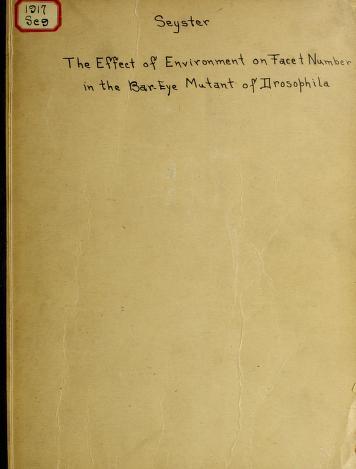 1917
Se9
Seyster
The Effect of Environment on Facet Number
in the Bar-Eye Mutant of Drosophila